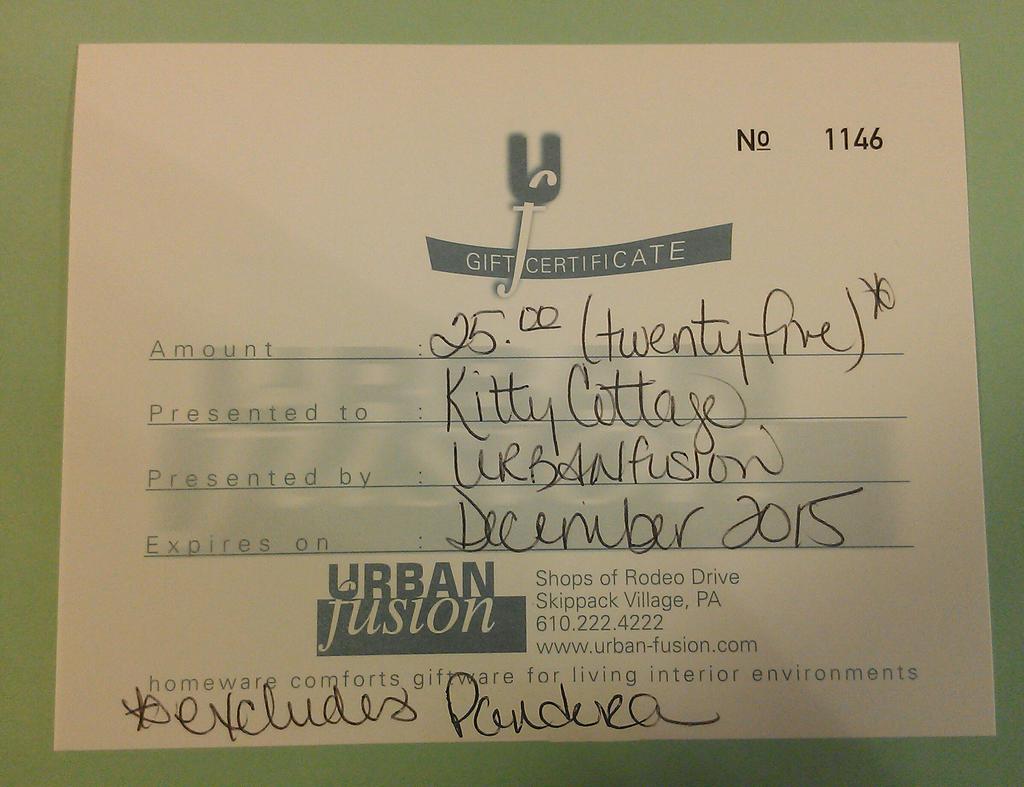 No 1146
Uf
GIFT CERTIFICATE
Amount : 25.00 (twenty five)*
Presented to : Kitty Cottage
Presented by : URBANfusion
Expires on : December 2015
URBAN
fusion
Shops of Rodeo Drive
Skippack Village, PA
610.222.4222
www.urban-fusion.com
homeware comforts giftware for living interior environments
*excludes Pandora